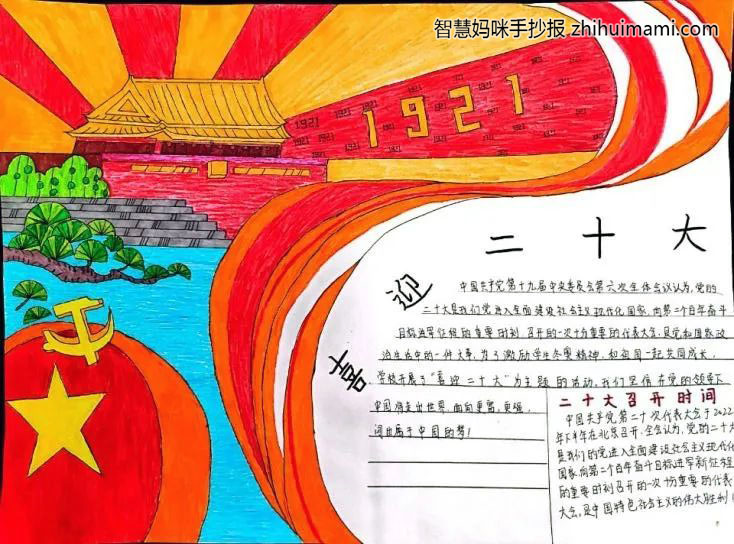 智慧妈咪手抄报 zhihuimami.com
1921
喜迎
二十大
中国共产党第十九届中央委员会第六次全体会议认为,党的
二十大是我们党进入全面建设社会主义现代化国家,向第二个百年奋斗
目标进军征程的重要时刻召开的一次十分重要的代表大会,是党和国家政
治生活中的一件大事,为了激励学生冬奥精神,和祖国一起共同成长,
学校开展了“喜迎二十大”为主题的活动,我们坚信在党的领导下
中国将走出世界,面向更富,更强,
二十大召开时间
中国共产党第二十次代表大会于2022
年下半年在北京召开,全会认为,党的二十大
是我们的党进入全面建设社会主义现代化
国家向第二个百年奋斗目标进军新征程
的重要时刻召开的一次十分重要的代表
大会,是中国特色社会主义的伟大胜利